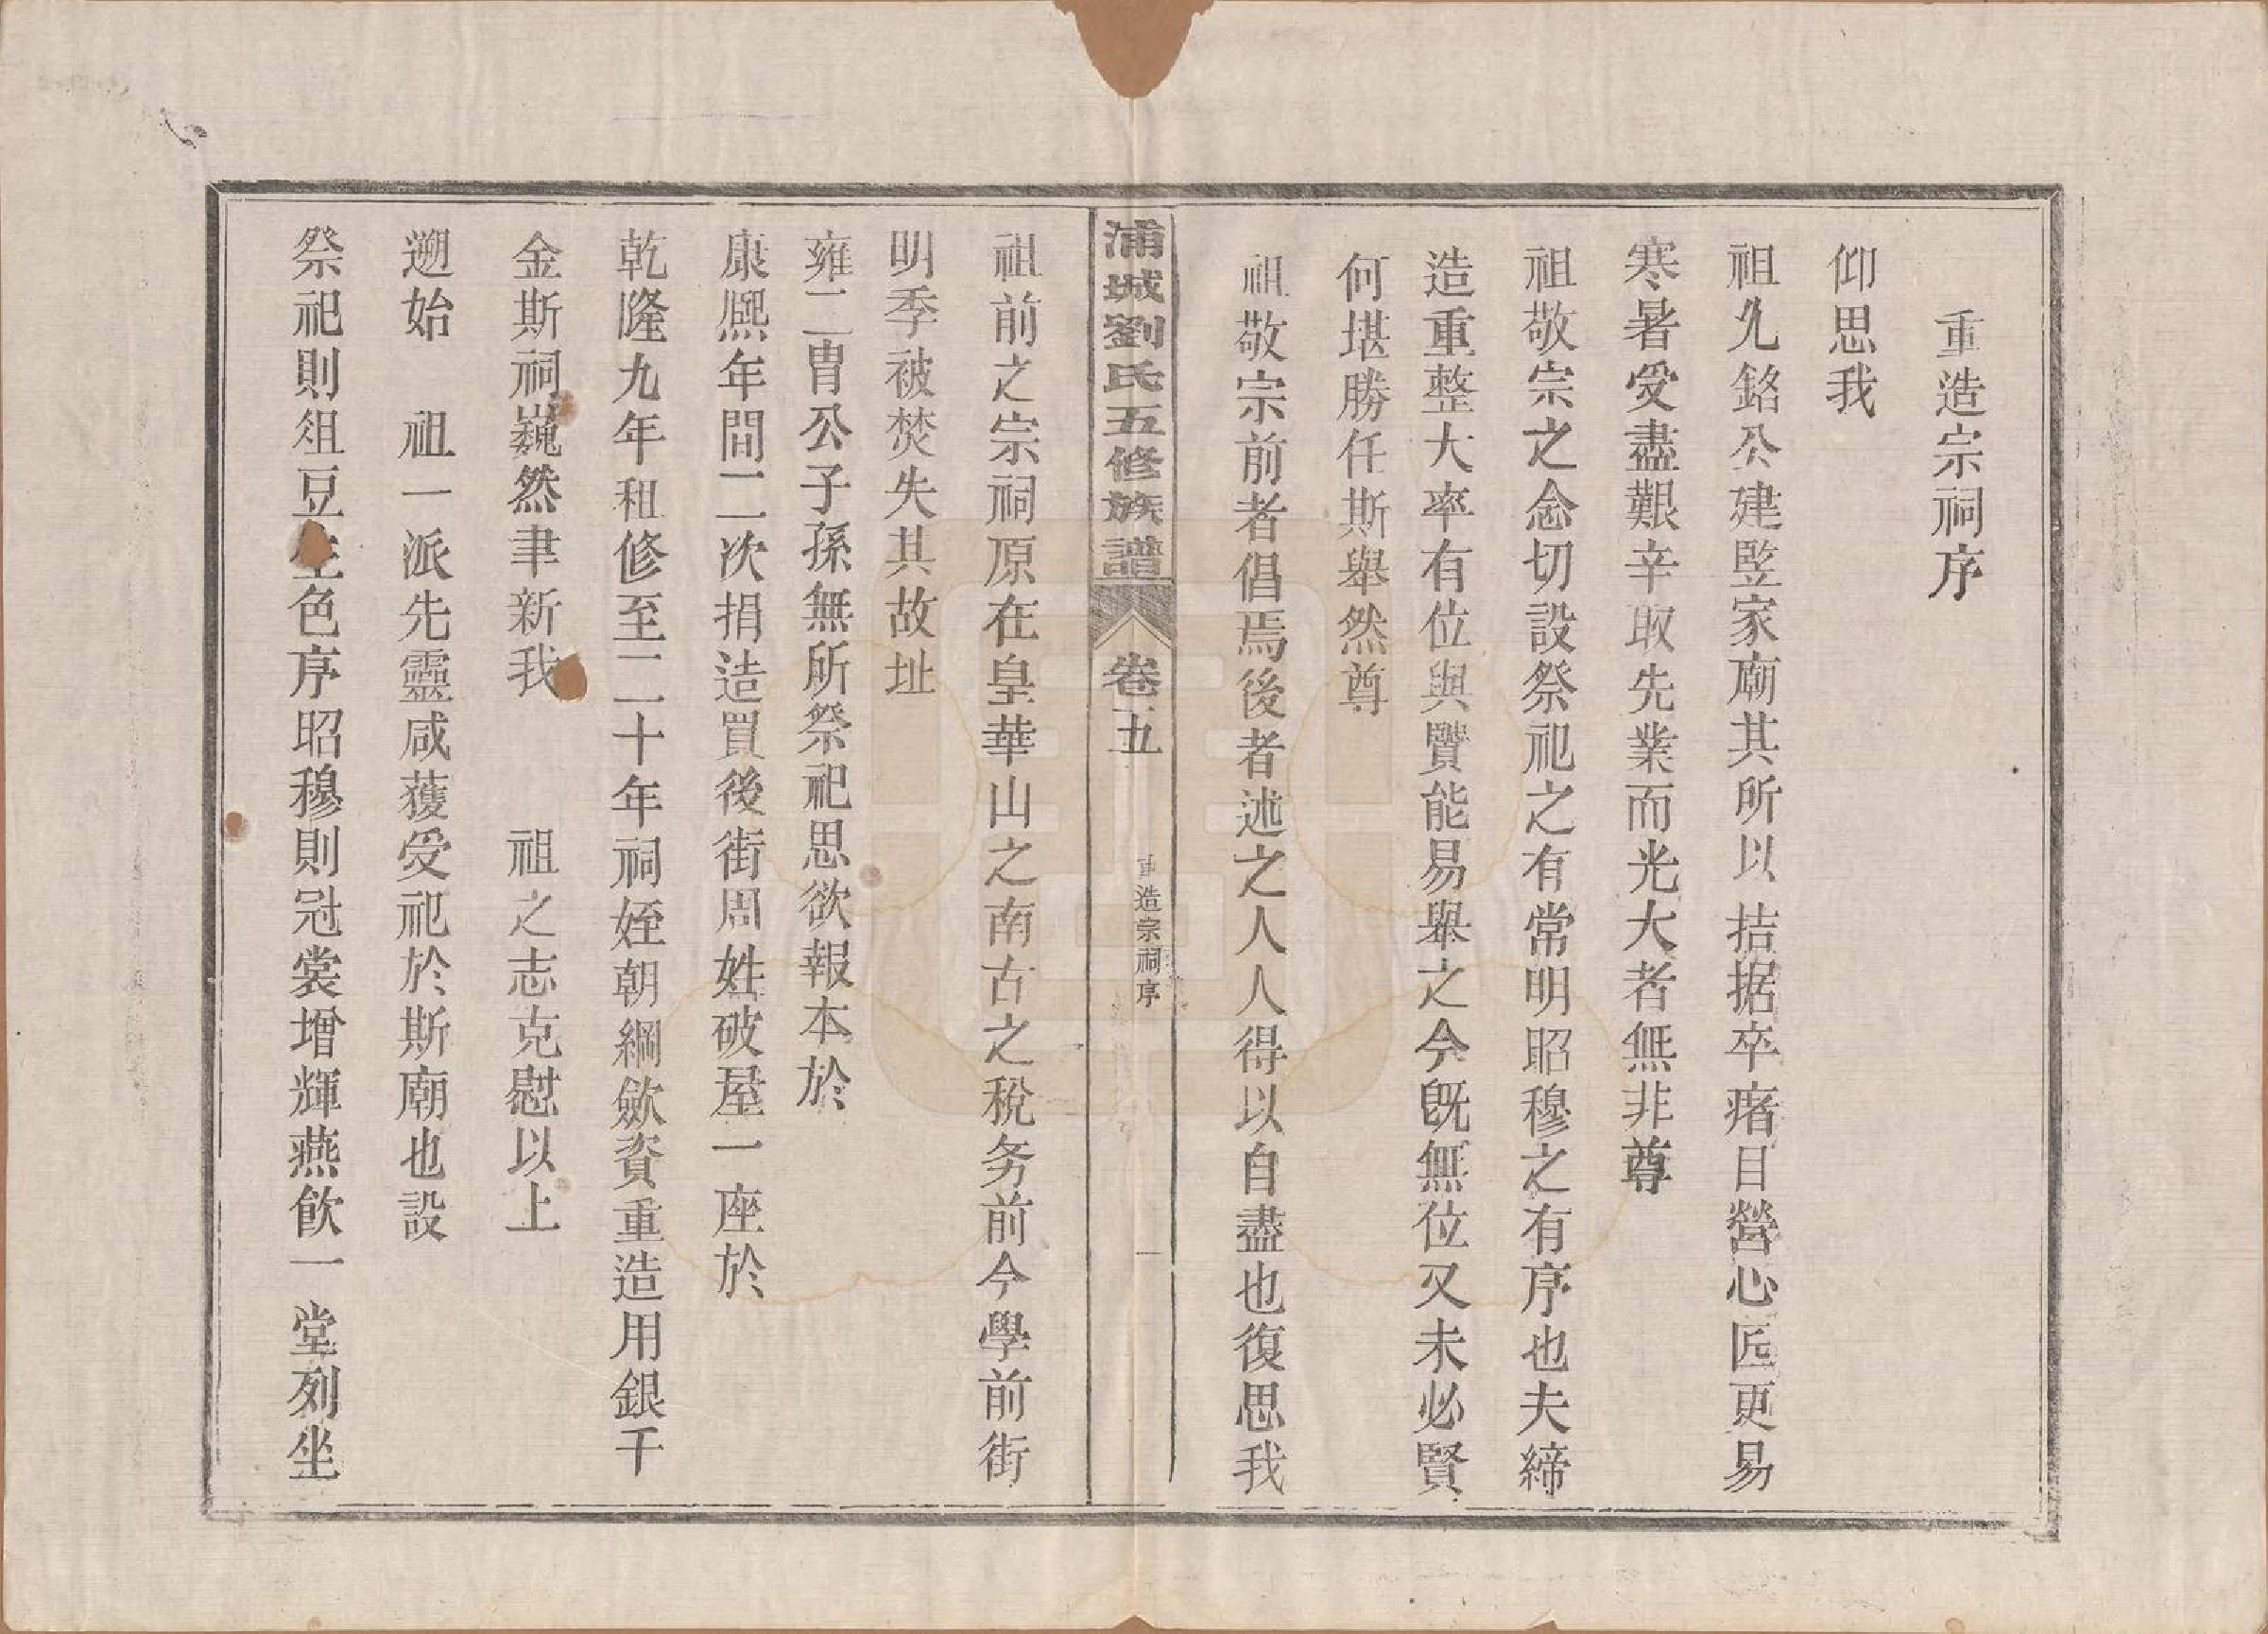 重造宗祠序
仰思我
祖允銘公建監家廟其所以拮据卒瘏目營心匠更易
寒暑受盡艱辛取先業而光大者無非尊
祖敬宗之念切設祭祀之有常明昭穆之有序也夫締
造重整大率有位與賢能易舉之今既無位又未必賢
何堪勝任斯舉然尊
祖敬宗前者倡焉後者述之人人得以自盡也復思我
浦城劉氏五修族譜
卷五
重造宗祠序
一
祖前之宗祠原在皇華山之南古之稅务前今學前街
明季被焚失其故址
雍二胄公子孫無所祭祀思欲報本於
康熙年間二次捐造買後街周姓破屋一座於
乾隆九年租修至二十年祠姪朝綱歛資重造用銀千
金斯祠巍然聿新我 祖之志克慰以上
遡始 祖一派先靈咸獲受祀於斯廟也設
祭祀則俎豆生色序昭穆則冠裳增輝燕飲一堂列坐